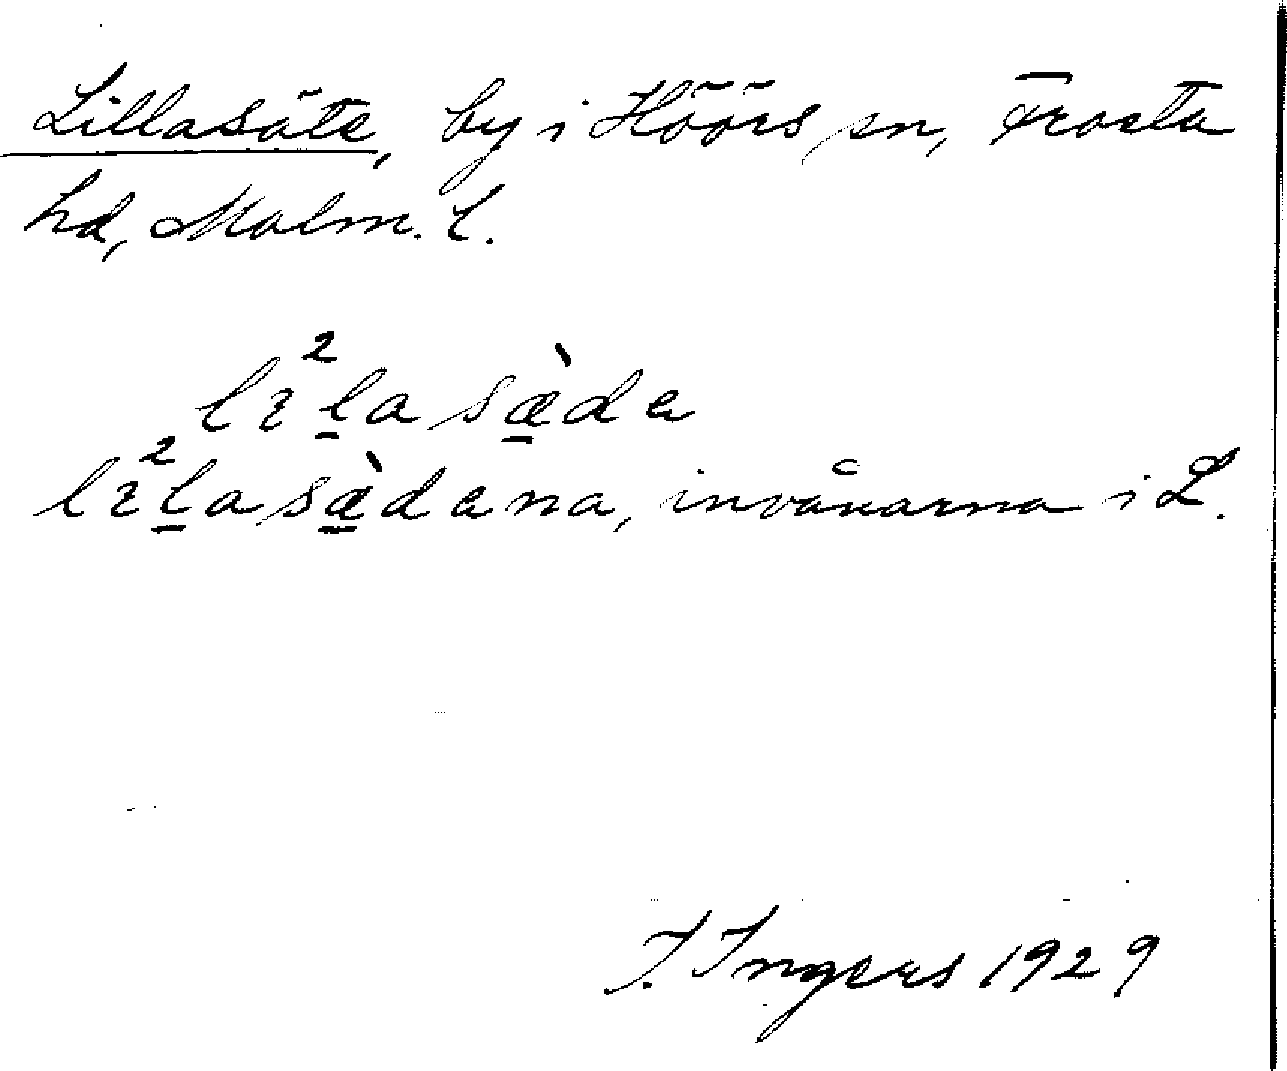 Lillasäte, by i Höörs sn, Frosta
hd, Malm. L.
lɪ²l̲a sæ̲̀da
lɪ²l̲asæ̲̀dana, invånarna i L.
I. Ingers 1929